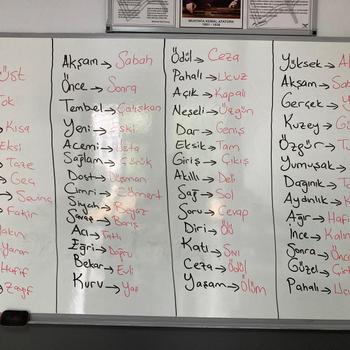 MUSTAFA KEMAL ATATÜRK
1881 - 1938
üst
Tok
Kısa
Eksi
Taze
Genç
Sevinç
Fakir
Hafif
Zayıf
Akşam → Sabah
Önce → Sonra
Tembel → Çalışkan
Yeni → Eski
Acemi → Usta
Sağlam → Çürük
Dost → Düşman
Cimri → Cömert
Siyah → Beyaz
Savaş → Barış
Acı → Tatlı
Eğri → Doğru
Bekar → Evli
Kuru → Yaş
Ödül → Ceza
Pahalı → Ucuz
Açık → Kapalı
Neşeli → Üzgün
Dar → Geniş
Eksik → Tam
Giriş → Çıkış
Akıllı → Deli
Sağ → Sol
Soru → Cevap
Diri → Ölü
Katı → Sıvı
Ceza → Ödül
Yaşam → Ölüm
Yüksek → Al
Akşam → Sa
Gerçek →
Kuzey → G
Özgür → T
Yumuşak →
Dağınık → T
Aydınlık → K
Ağır → Hafi
İnce → Kalın
Sonra → Önc
Güzel → Çir
Pahalı → Uc